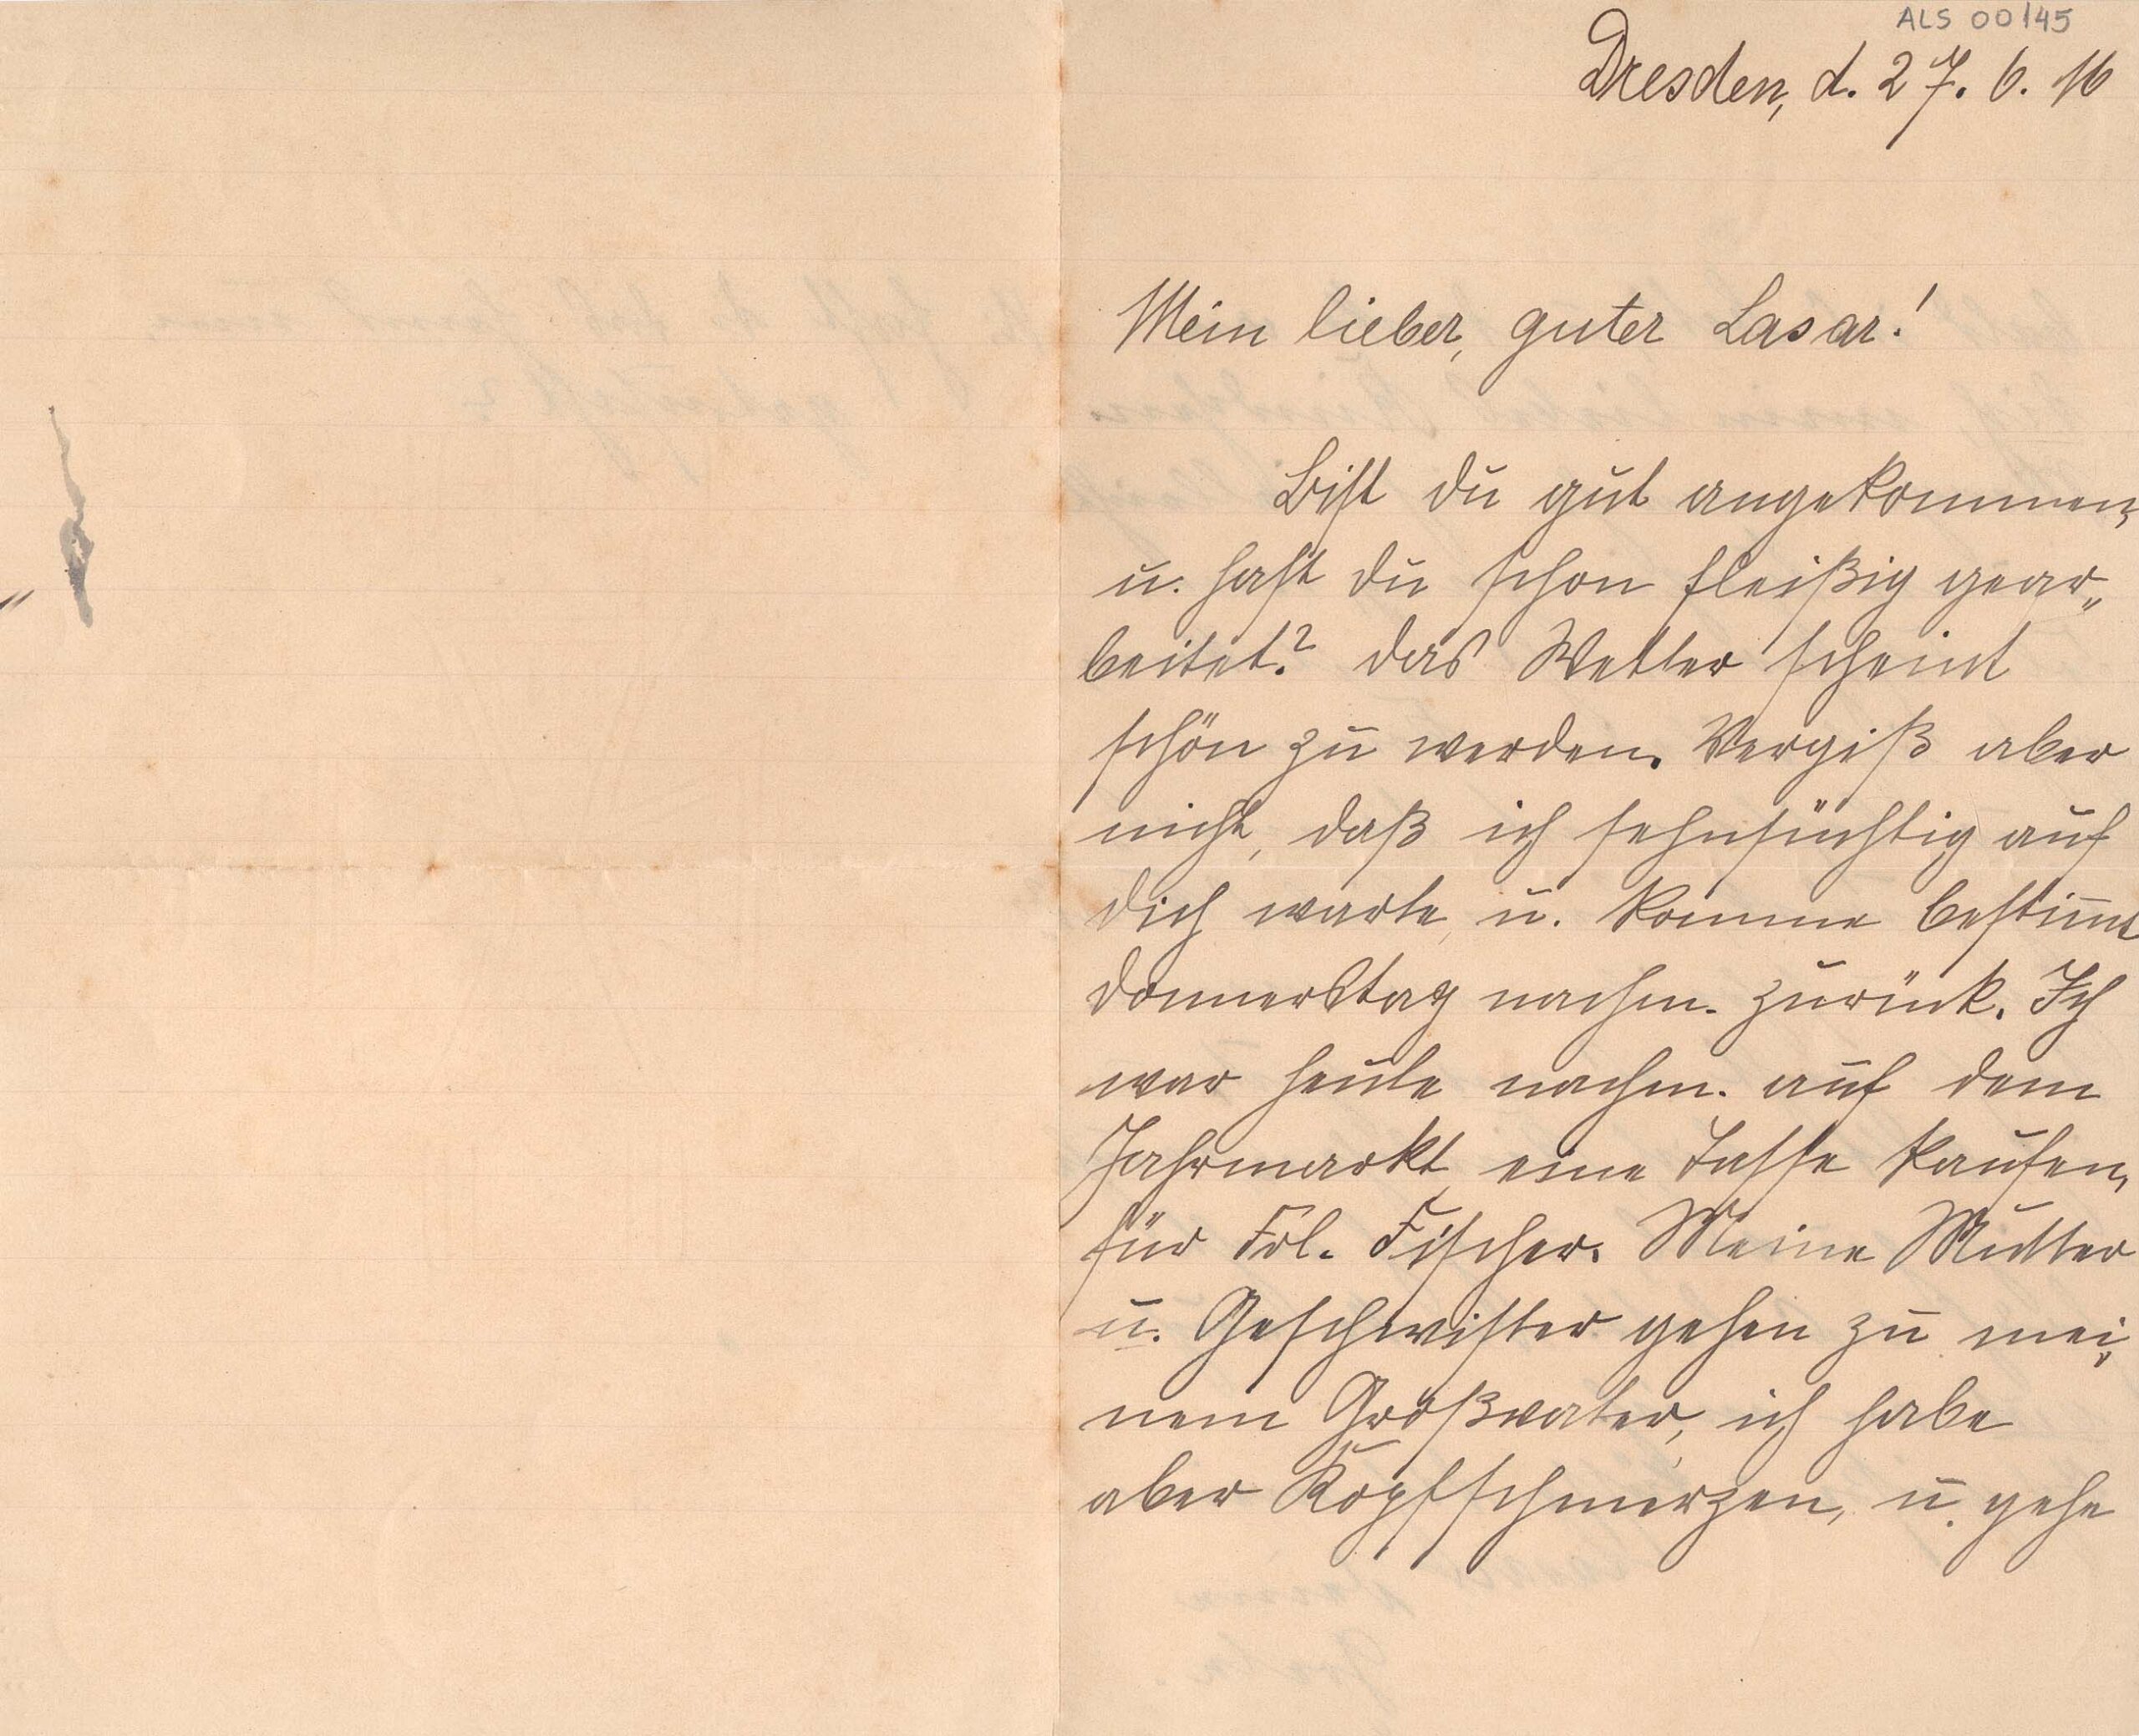 ALS 00/45
Dresden, d. 27. 6. 16
Mein lieber, guter Lasar!
Bist du gut angekommen,
u. hast du schon fleißig gear„
beitet? Das Wetter scheint
schön zu werden. Vergiß aber
nicht, daß ich sehnsüchtig auf
dich warte, u. komme bestimmt
Donnerstag nachm. zurück. Ich
war heute nachm. auf dem
Jahrmarkt, eine Tasse kaufen,
für Frl. Fischer. Meine Mutter
u. Geschwister gehen zu mei„
nem Großvater, ich habe
aber Kopfschmerzen, u. gehe